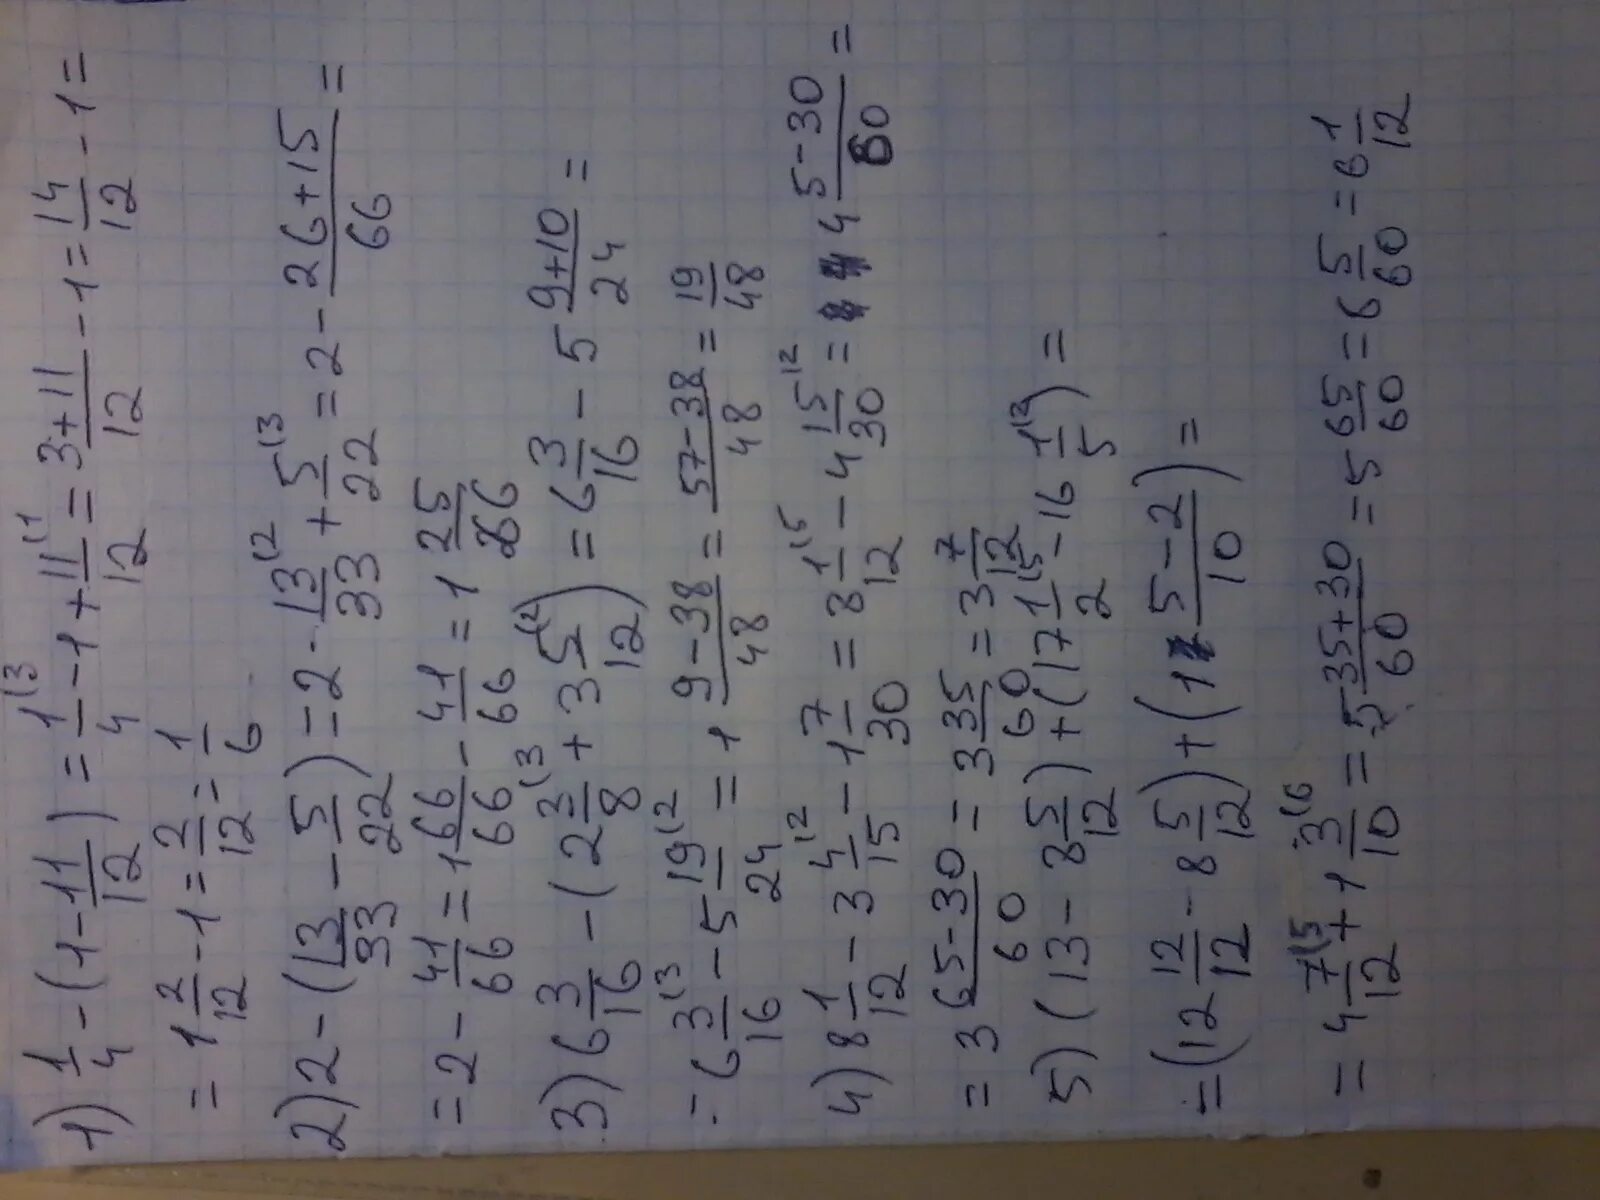 1) 1/4 - (1 - 11/12) = 1/4 (3 - 1 + 11/12 (1 = 3+11/12 - 1 = 14/12 - 1 =
= 1 2/12 - 1 = 2/12 = 1/6
2) 2 - (13/33 - 5/22) = 2 - 13/33 (2 + 5/22 (3 = 2 - 26+15/66 =
= 2 - 41/66 = 1 66/66 - 41/66 = 1 25/66
3) 6 3/16 - (2 2/8 (3 + 3 5/12 (2) = 6 3/16 - 5 9+10/24 =
= 6 3/16 (3 - 5 19/24 (2 = 1 9-38/48 = 57-38/48 = 19/48
4) 8 1/12 - 3 4/15 (2 - 1 7/30 = 8 1/12 (5 - 4 15/30 (2 = 4 5-30/60 =
= 3 65-30/60 = 3 35/60 = 3 7/12
5) (13 - 8 5/12) + (17 1/2 (5 - 16 1/5 (2) =
= (12 12/12 - 8 5/12) + (1 5-2/10) =
= 4 7/12 (5 + 1 3/10 (6 = 5 35+30/60 = 5 65/60 = 6 5/60 = 6 1/12